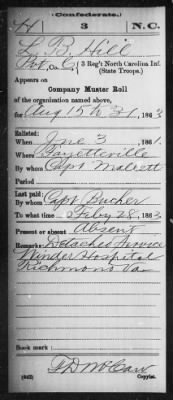 (Confederate.)
H 3 N.C.
L. B. Hill
Pvt, Co. G, 3 Reg't North Carolina Inf.
(State Troops.)
Appears on
Company Muster Roll
of the organization named above,
for Aug 15th 31, 1863
Enlisted:
When June 3, 1861.
Where Fayetteville
By whom Capt Mallett
Period
Last paid:
By whom Capt Bucher
To what time Feby 28, 1863
Present or absent Absent
Remarks: Detached Service
Winder Hospital
Richmond Va
Book mark:
Copyist.